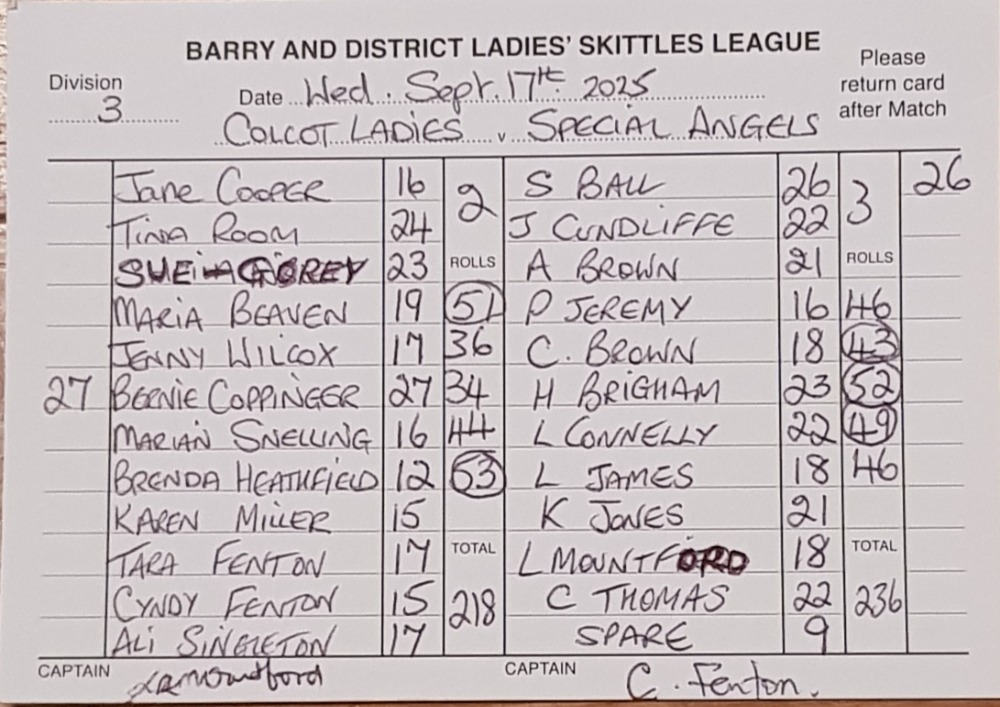 BARRY AND DISTRICT LADIES' SKITTLES LEAGUE
Please return card after Match
Division 3
Date Wed. Sept. 17th 2025
COLCOT LADIES v SPECIAL ANGELS
Jane COOPER 16 2 S BALL 26 3 26
TINA ROOM 24 J CUNDLIFFE 22
SHEILA GOREY 23 ROLLS A BROWN 21 ROLLS
MARIA BEAVEN 19 51 P JEREMY 16 46
JENNY WILCOX 17 36 C. BROWN 18 43
27 BERNIE COPPINGER 27 34 H BRIGHAM 23 52
MARIAN SNELLING 16 44 L CONNELLY 22 49
BRENDA HEATHFIELD 12 53 L JAMES 18 46
KAREN MILLER 15 K JONES 21
TARA FENTON 17 TOTAL L MOUNTFORD 18 TOTAL
CYNDY FENTON 15 218 C THOMAS 22 236
ALI SINGLETON 17 SPARE 9
CAPTAIN CAPTAIN C. Fenton.